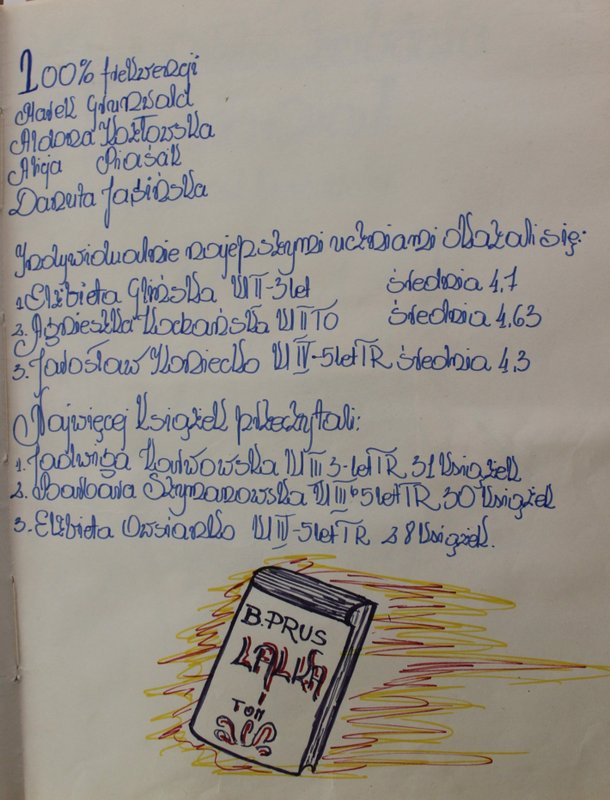 100% frekwencji
Marek Grunwald
Aldona Kozłowska
Alicja Ptasák
Danuta Jasińska
Indywidualnie najepszymi uczniami okazali się:
1. Elżbieta Glińska kl II-3let średnia 4,7
2. Agnieszka Kochańska kl II TO średnia 4,63
3. Jarosław Koniecko kl IV-5let TR średnia 4,3
Najwięcej książek przeczytali:
1. Jadwiga Karwowska kl III 3-let TR. 31 książek
2. Barbara Szymanowska kl III b 5let TR, 30 książek
3. Elżbieta Owsianko kl IV-5let TR 28 książek.
B. PRUS
LALKA
TOM